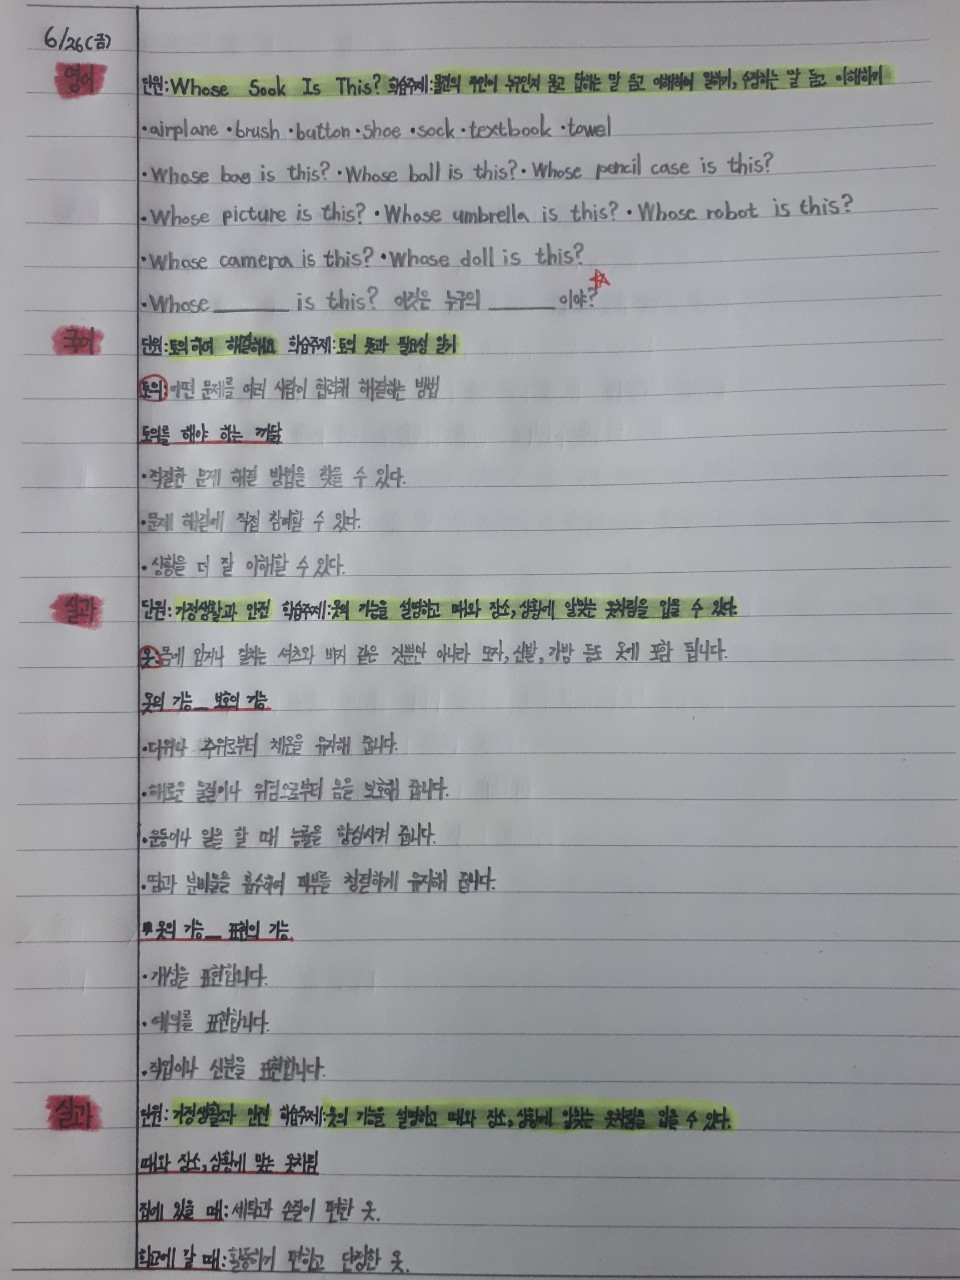 6/26(금)
영어 단원: Whose Sock Is This? 학습주제: 물건의 주인이 누구인지 묻고 답하는 말 듣고 이해하여 말하기, 수정하는 말 듣고 이해하기
·airplane ·brush ·button ·shoe ·sock ·textbook ·towel
·Whose bag is this? ·Whose ball is this? ·Whose pencil case is this?
·Whose picture is this? ·Whose umbrella is this? ·Whose robot is this?
·Whose camera is this? ·Whose doll is this?
·Whose ______ is this? 이것은 누구의 ______ 이야? ☆
국어 단원: 토의하여 해결해요 학습주제: 토의 뜻과 필요성 알기
토의: 어떤 문제를 여러 사람이 협력해 해결하는 방법
토의를 해야 하는 까닭
·적절한 문제 해결 방법을 찾을 수 있다.
·문제 해결에 직접 참여할 수 있다.
·상황을 더 잘 이해할 수 있다.
실과 단원: 가정생활과 안전 학습주제: 옷의 기능을 설명하고 때와 장소, 상황에 알맞는 옷차림을 입을 수 있다.
옷: 몸에 입거나 걸치는 셔츠와 바지 같은 것뿐만 아니라 모자, 신발, 가방 등도 옷에 포함 됩니다.
옷의 기능_ 보호의 기능
·더위나 추위로부터 체온을 유지해 줍니다.
·해로운 물질이나 위험으로부터 몸을 보호해 줍니다.
·운동이나 일을 할 때 능률을 향상시켜 줍니다.
·땀과 분비물을 흡수하여 피부를 청결하게 유지해 줍니다.
옷의 기능_ 표현의 기능
·개성을 표현합니다.
·예의를 표현합니다.
·직업이나 신분을 표현합니다.
실과 단원: 가정생활과 안전 학습주제: 옷의 기능을 설명하고 때와 장소, 상황에 알맞는 옷차림을 입을 수 있다.
때와 장소, 상황에 맞는 옷차림
집에 있을 때: 세탁과 손질이 편한 옷.
학교에 갈 때: 활동하기 편하고 단정한 옷.